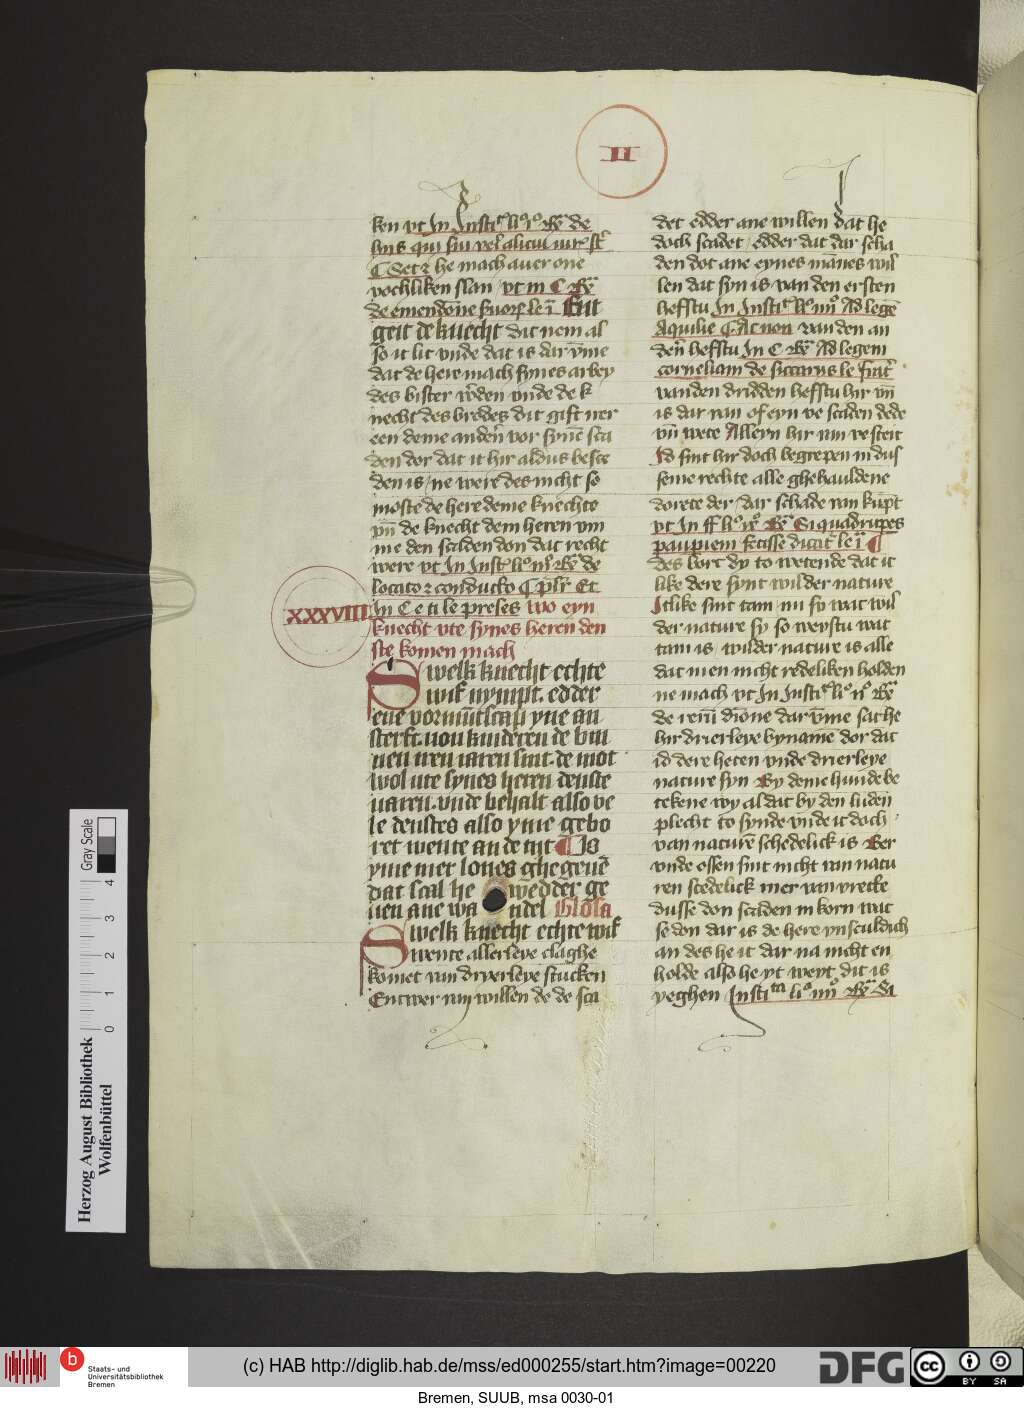 II
ken vt In Instit li i Rx de
hiis qui sui vel alieni iur st
Set he mach auer one
vochliken slan vt in C Rx
de emendone seruor le i Ent
geit de knecht dat nem al
so it lit vnde dat is dar vme
dat de here mach synes arbey
des bister werden vnde de k
necht des brodes dit gift ner
een deme anden vor syme sca
den dor dat it hir aldus besce
den is ne were des nicht so
moste de here deme knechte
vn de knecht dem heren vm
me den scalden don dat recht
were vt In Inst li iii Rx de
locato z conducto
In C e ti le preses wo eyn
XXXVIII
knecht vte synes heren den
ste komen mach
Swelk knecht echte
wif nympt edder
ene vormuntscap yne an
sterft von kinderen de bin
nen iren iaren sint de mot
wol vte synes heren denste
varen vnde behalt also ve
le denstes also yme gebo
ret wente an de tyt Is
yme mer lones ghegeuen
dat scal he wedder ge
uen ane wa ndel Glosa
Swelk knecht echte wif
wente allerleye claghe
komet van dryerleye stucken
Entwer van willen de de sca
det edder ane willen dat he
doch scadet edder dat dar scha
den dot ane eynes mannes wil
len dat syn is van den ersten
hefstu In Instit li iiii Ad legem
Aquilie Ac non van den an
den hefstu In C Rx Ad legem
corneliam de siccariis le
van den dridden hefstu hir vn
is dar van of eyn ve scaden dede
vn wete Allern hir van ve steit
Id sint hir doch begrepen in dus
seme rechte alle ghehauldene
dorete der dar schade van kumpt
vt In ff li ix Rx Si quadrupes
paupiem fecisse dicat le i
des bort dy to wetende dat it
like dere synt wilder nature
Itlike sint tam nu sy wat wil
der nature sy so weystu wat
tam is wilder nature is alle
dat men nicht redeliken holden
ne mach vt In Instit li ii Rx
de rerum dione dar vme sache
hir drierleye byname dor dat
id dere heten vnde drierleye
nature syn By deme hunde be
tekene wy al dat by den luden
plecht to synde vnde it doch
van naturen schedelick is Ber
vnde ossen sint nicht van natu
ren scedelick mer van vrecke
dusse don scalden in korn wat
se don dar is de here vnsculdich
an des he it dar na nicht en
holde also he yt weyt dit is
yeghen Instituta li iiii Rx Si
Gray Scale
4 3 2 1 0
Herzog August Bibliothek
Wolfenbüttel
b
Staats- und
Universitätsbibliothek
Bremen
(c) HAB http://diglib.hab.de/mss/ed000255/start.htm?image=00220
DFG
cc BY SA
Bremen, SUUB, msa 0030-01